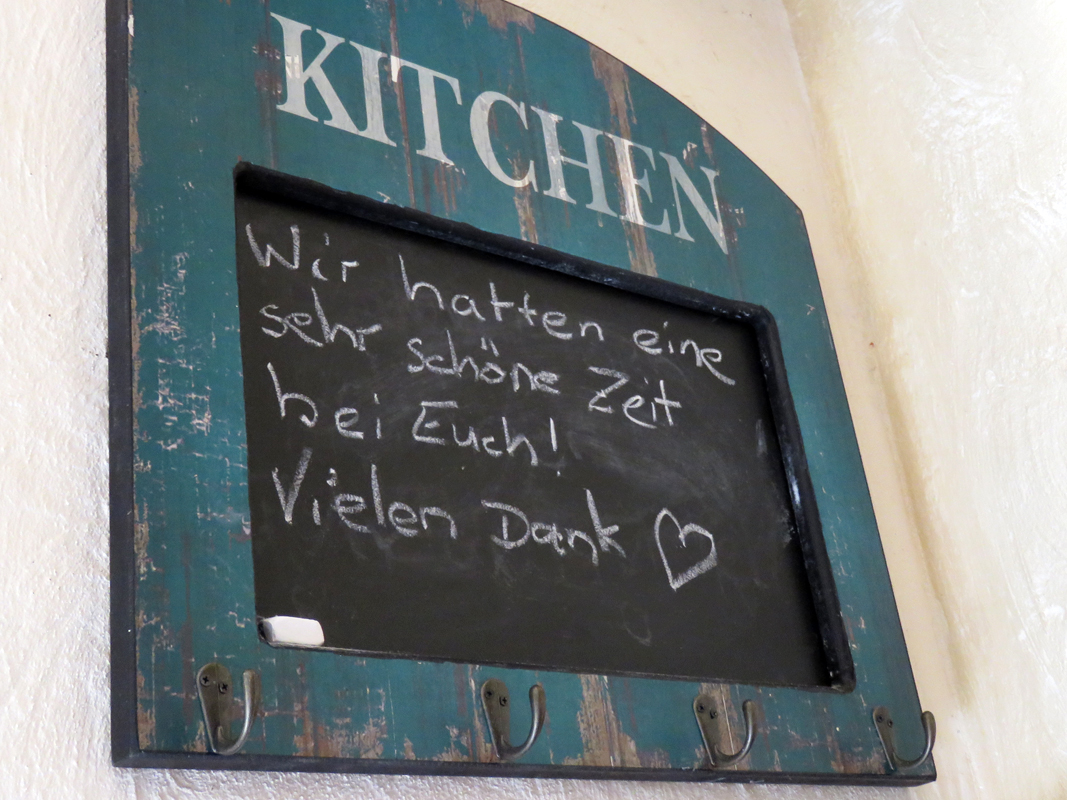 KITCHEN
Wir hatten eine
sehr schöne Zeit
bei Euch!
Vielen Dank